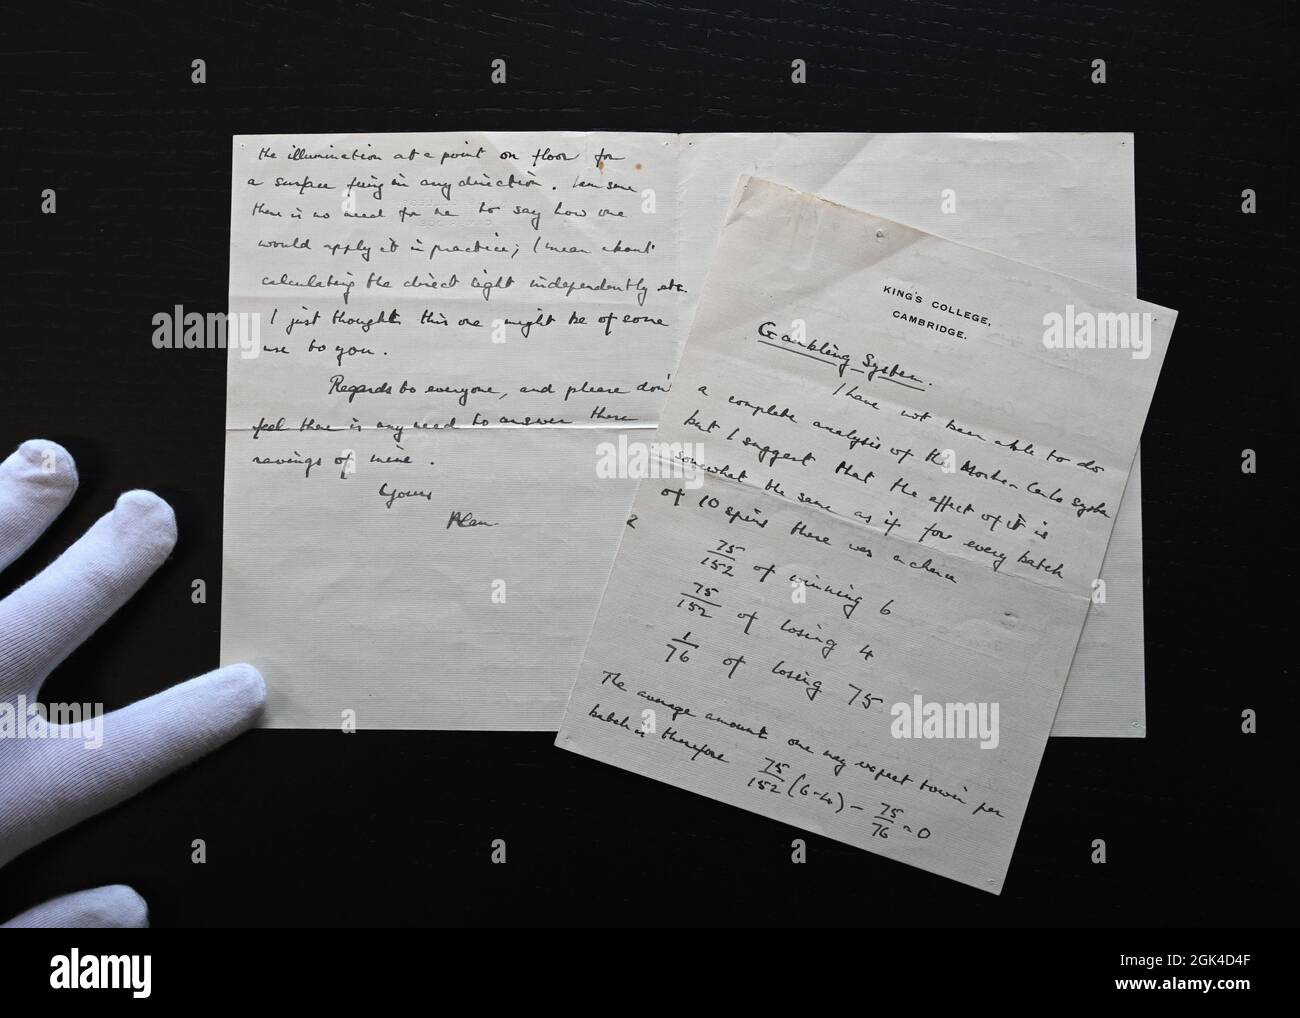 the illumination at a point on floor for
a surface facing in any direction. I am sure
there is no need for me to say how one
would apply it in practice; I mean about
calculating the direct light independently etc.
I just thought this one might be of some
use to you.
Regards to everyone, and please don'
feel there is any need to answer these
ravings of mine.
Yours
Alan.
KING'S COLLEGE,
CAMBRIDGE.
Gambling System.
I have not been able to do
a complete analysis of the Monte-Carlo system
but I suggest that the effect of it is
somewhat the same as if for every batch
of 10 spins there was a chance
75/152 of winning 6
75/152 of losing 4
1/76 of losing 75
The average amount one may expect to win per
batch is therefore 75/152 (6-4) - 75/76 = 0
alamy
Image ID: 2GK4D4F
www.alamy.com